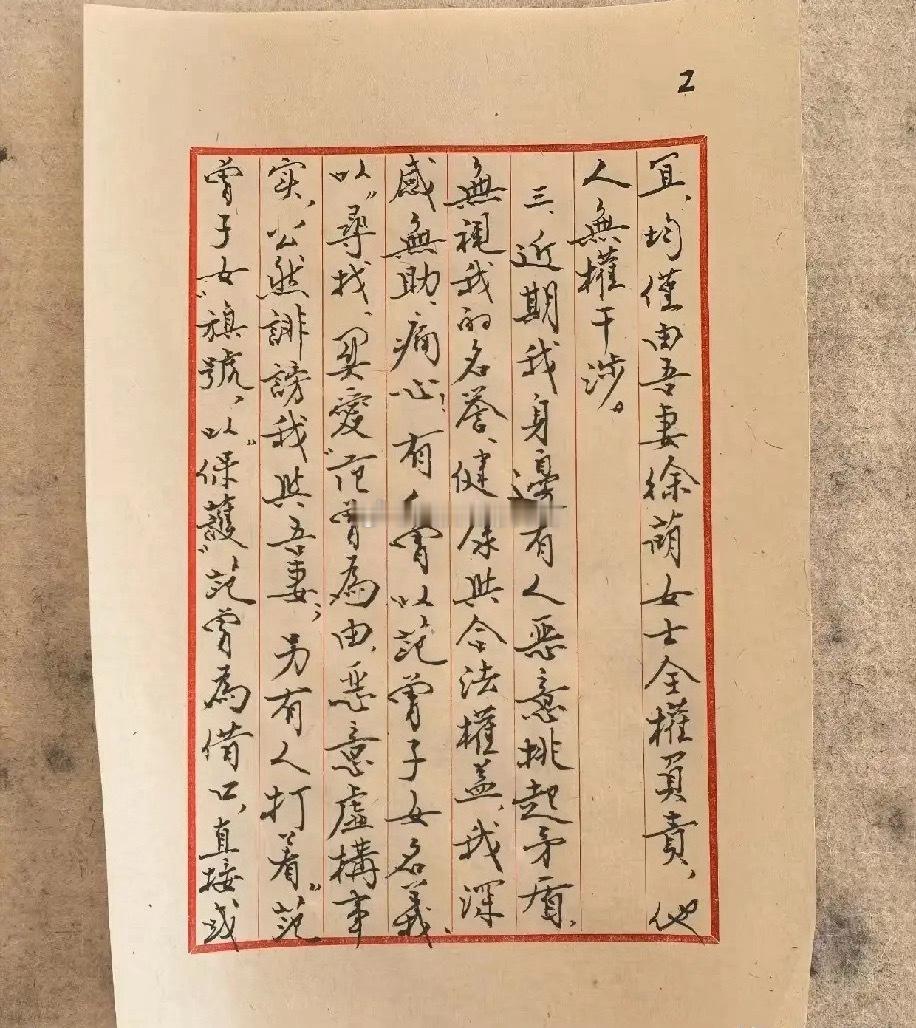 2
宜、均僅由吾妻徐萌女士全權負責、他
人無權干涉。
三、近期我身邊有人惡意挑起矛盾、
無視我的名譽、健康與合法權益、我深
感無助、痛心；有人曾以范曾子女名義、
以“尋找、關愛”范曾為由、惡意虛構事
实、公然誹謗我與吾妻；另有人打着“范
曾子女”旗號、以“保護”范曾為借口、直接或